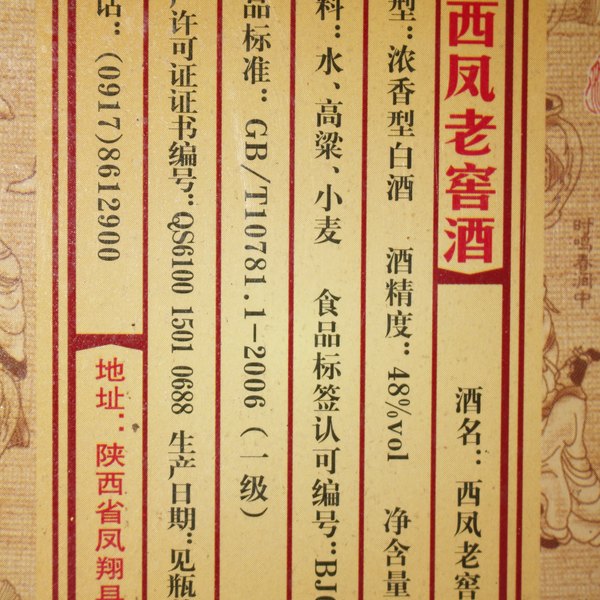 西凤老窖酒
酒名：西凤老窖
型：浓香型白酒 酒精度：48%vol 净含量
料：水、高粱、小麦 食品标签认可编号：BJ
品标准：GB/T10781.1-2006（一级）
许可证证书编号：QS6100 1501 0688 生产日期：见瓶
话：(0917)8612900
地址：陕西省凤翔县
时鸣春涧中